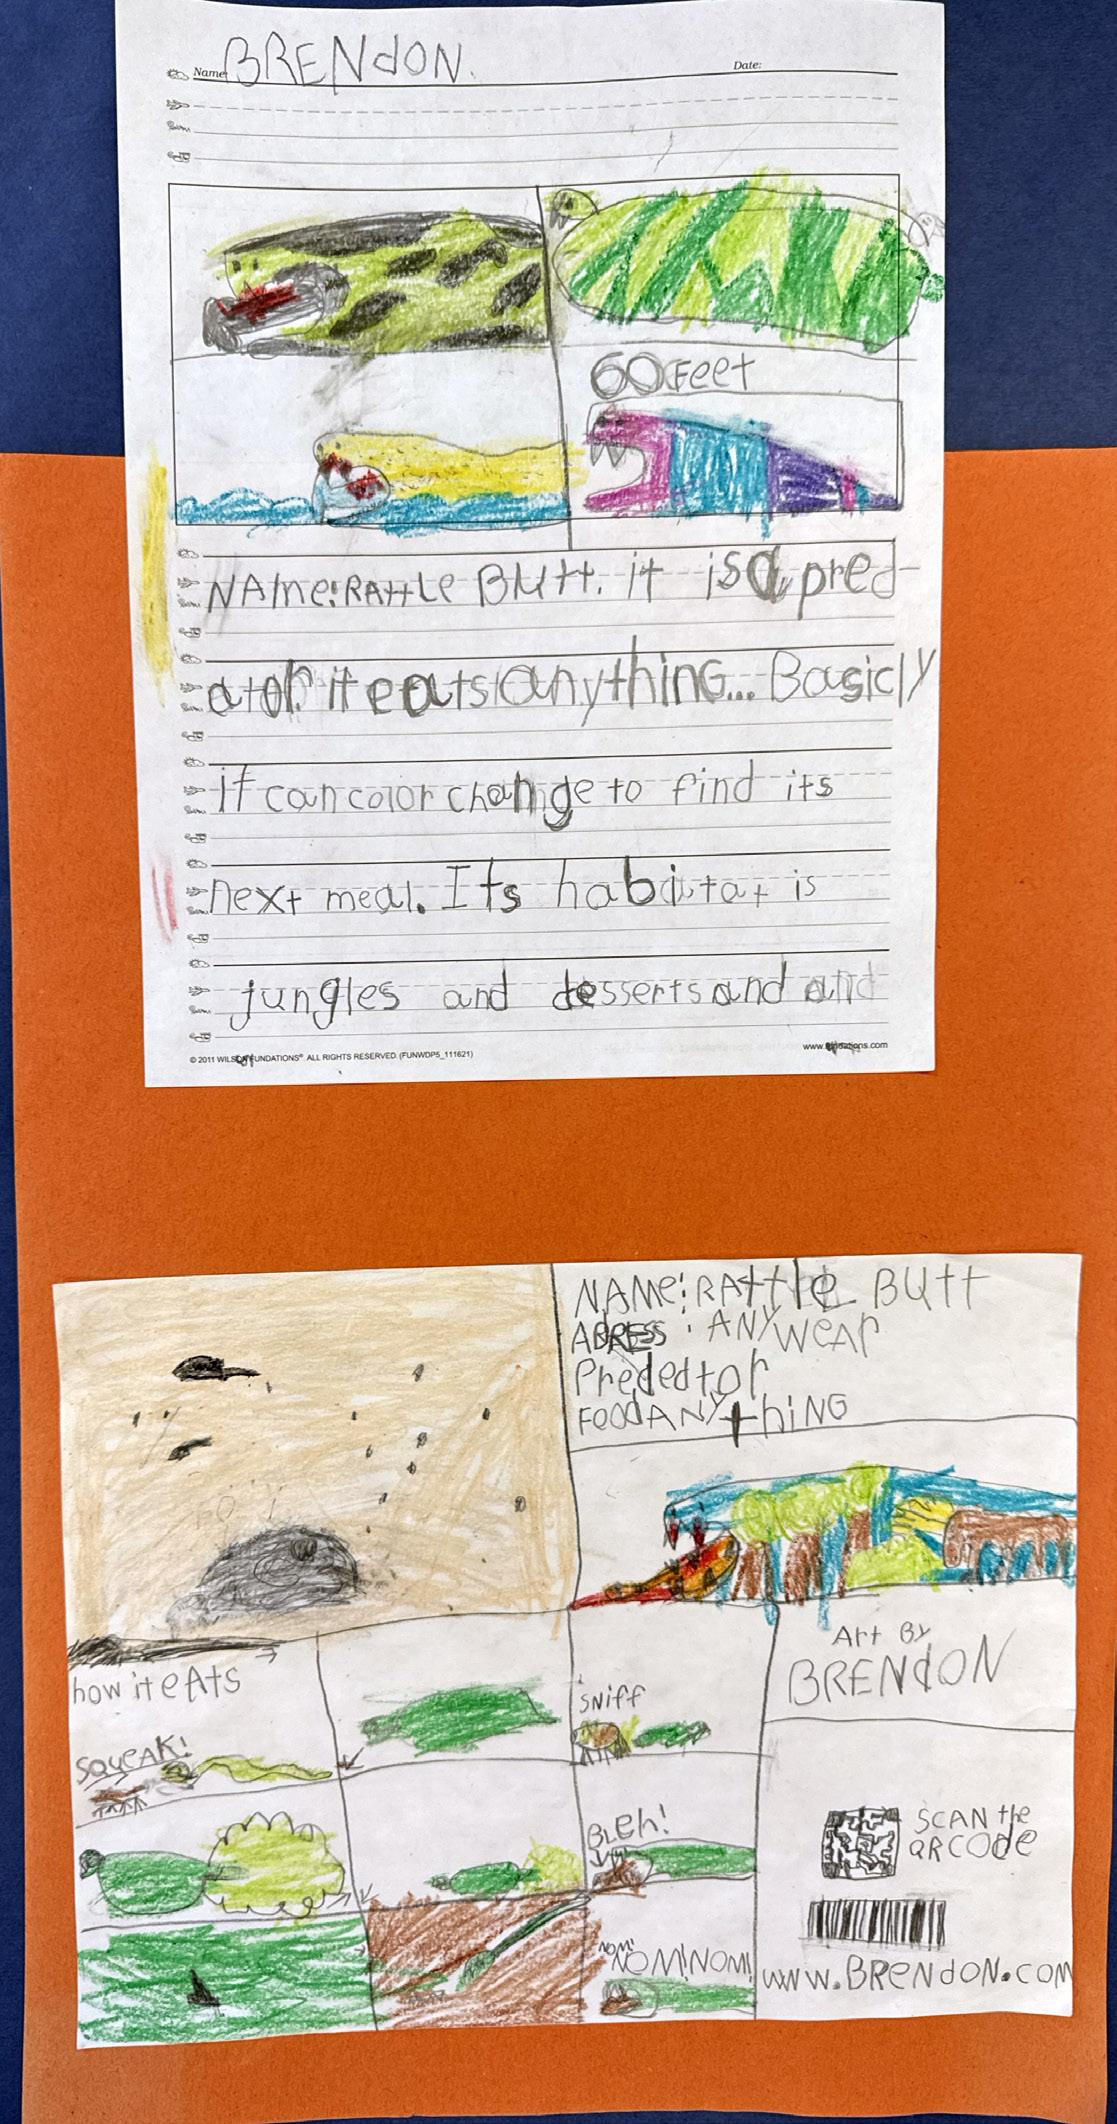 Name: BRENdON.
Date:
60 Feet
NAme: RAttLe Butt. it is a pred-
ator. it eats anything... Basicly
it can color change to find its
next meal. Its habitat is
jungles and desserts and and
© 2011 WILSON FUNDATIONS® ALL RIGHTS RESERVED. (FUNWDP5_111621)
www.fundations.com
NAMe: RAttle Butt
ADRESS: ANYWeAr
Prededtor
FOOd ANYthiNG
how it eAts
SQUeAK!
SNiff
BLeh!
NOM! NOM! NOM!
Art By
BRENdON
SCAN the
QR COde
www.BRENdON.com